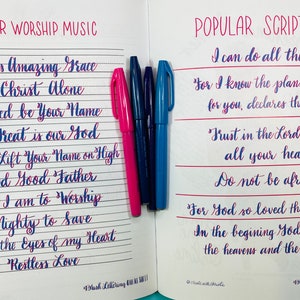 R WORSHIP MUSIC
s Amazing Grace
Christ Alone
ed be Your Name
reat is our God
Lift Your Name on High
d Good Father
I am to Worship
ighty to Save
the Eyes of my Heart
Restless Love
Brush Lettering
POPULAR SCRIP
I can do all th
For I know the plan
for you, declares th
Trust in the Lord
all your hea
Do not be afr
For God so loved th
In the beginning God
the heavens and the